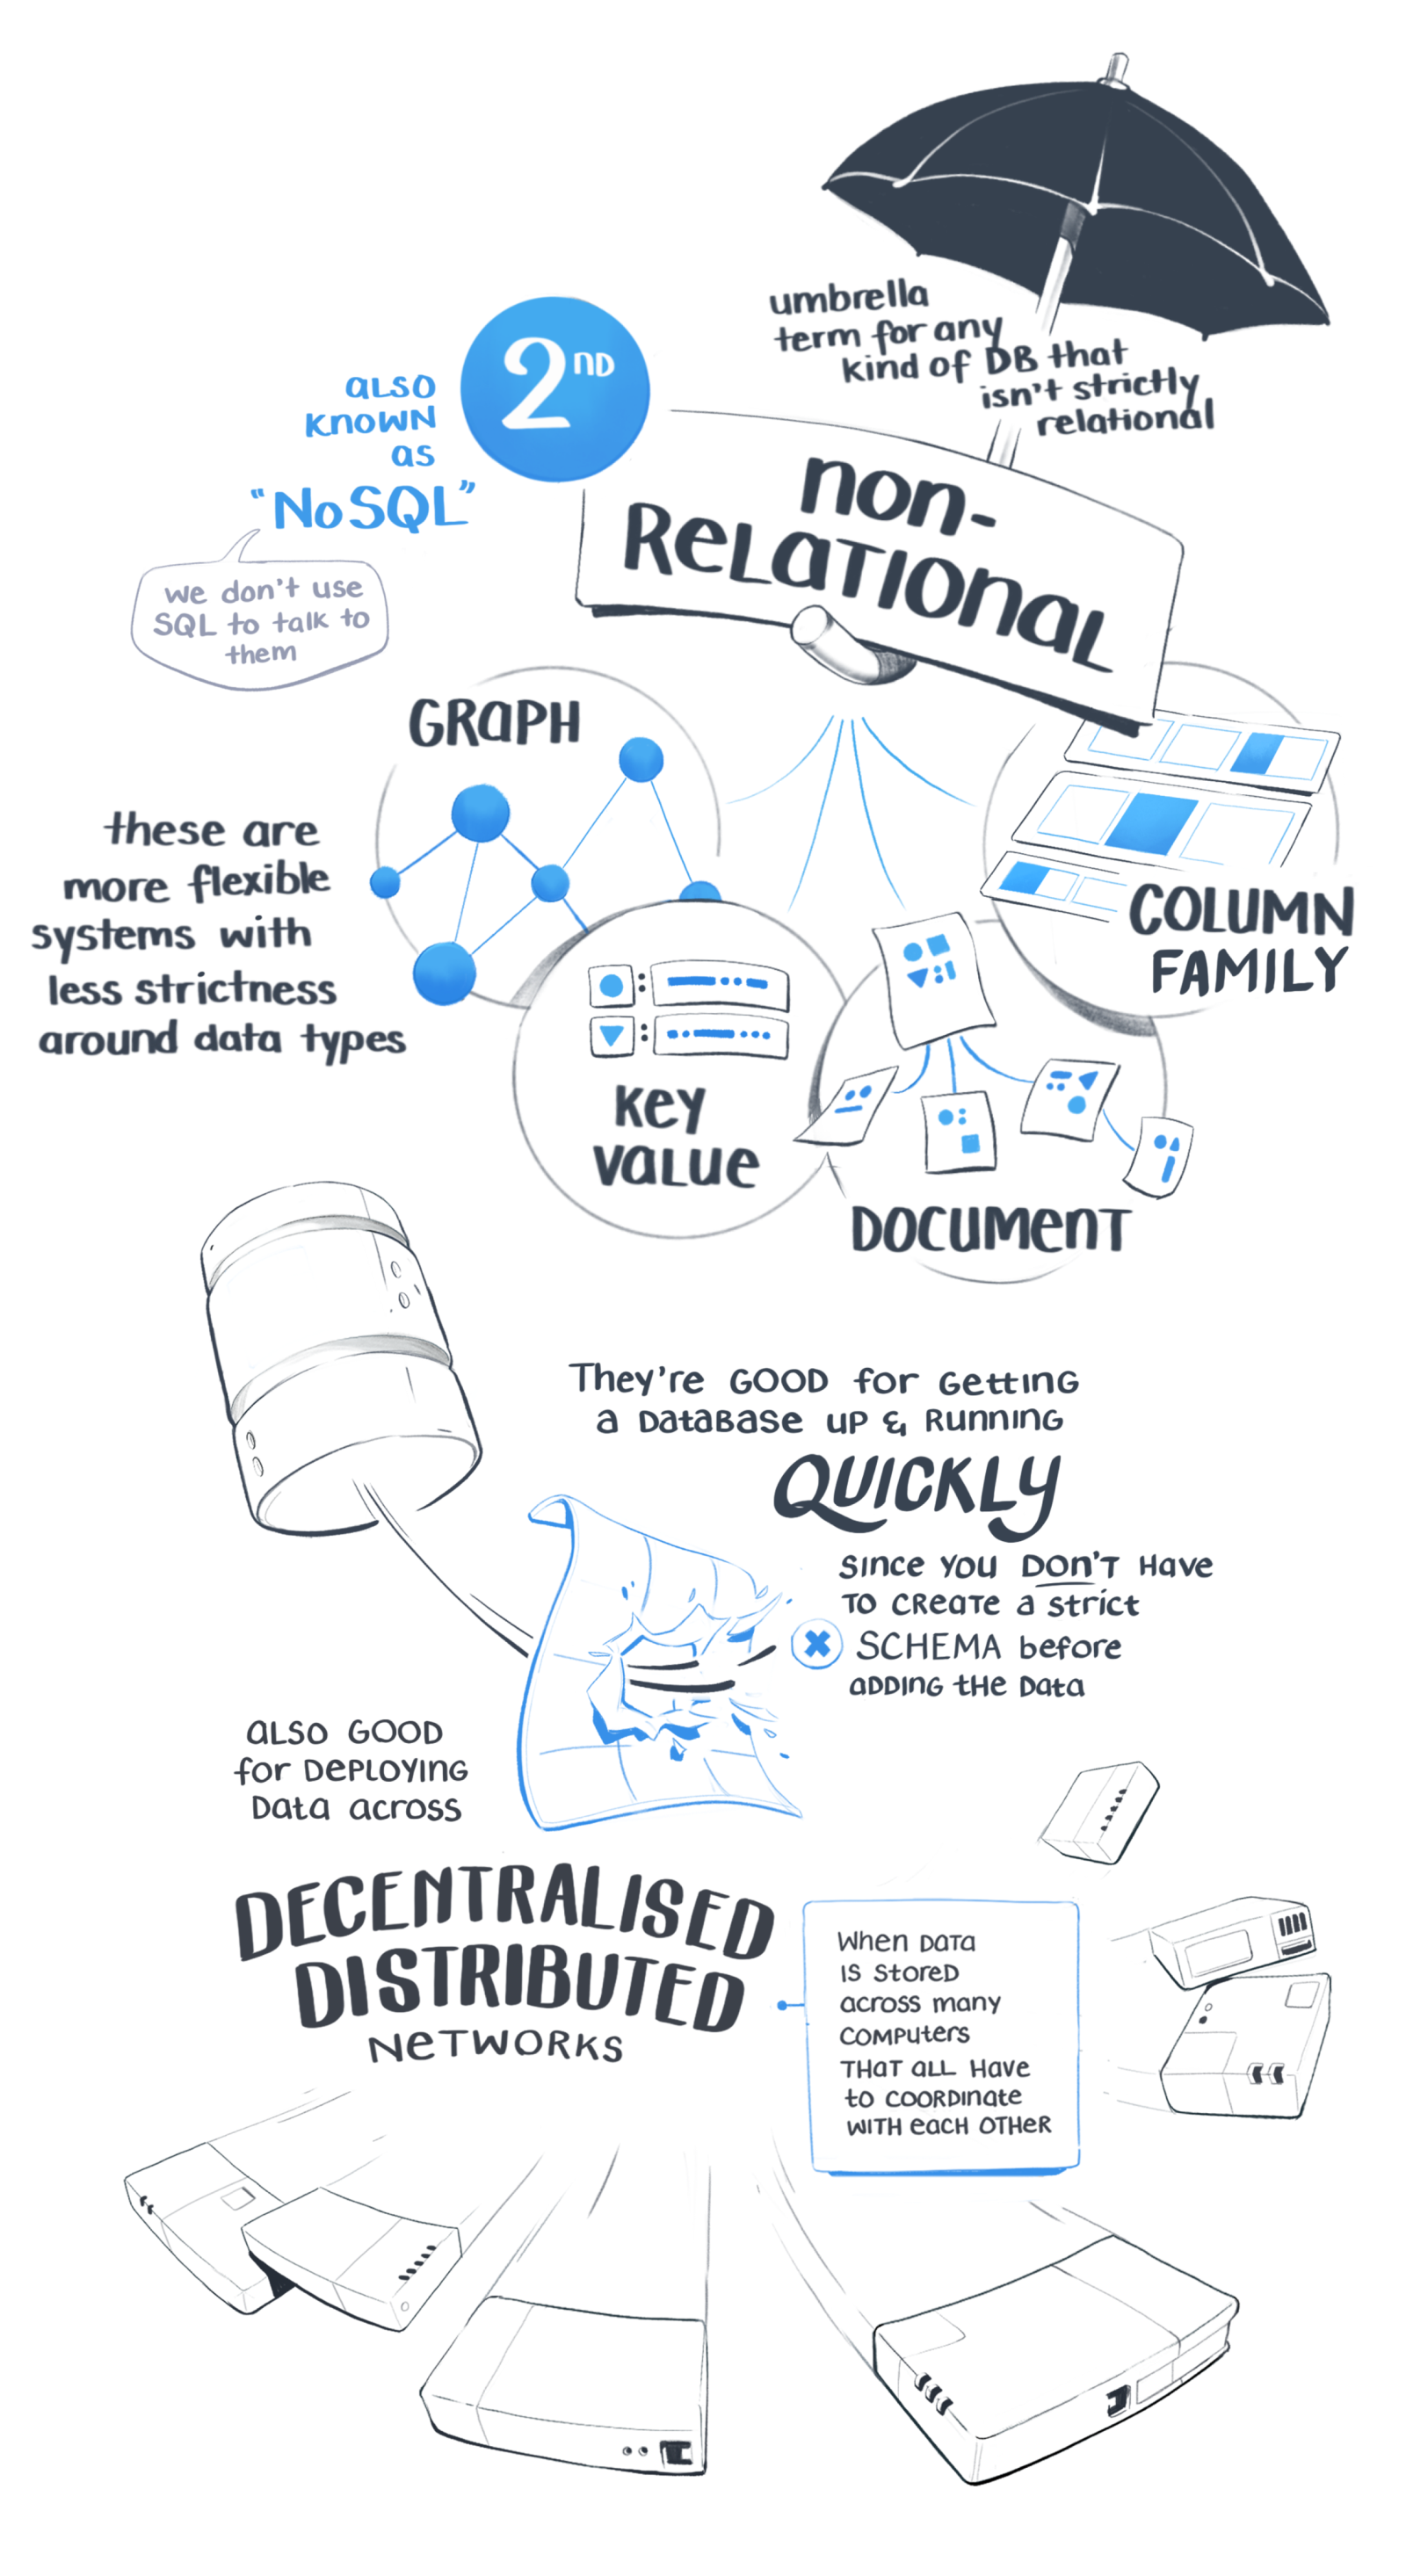 umbrella
term for any
kind of DB that
isn't strictly
relational
2ND
also
known
as
"NoSQL"
we don't use
SQL to talk to
them
non-
Relational
GRAPH
these are
more flexible
systems with
less strictness
around data types
COLUMN
FAMILY
Key
Value
DOCUMENT
They're GOOD for Getting
a Database up & Running
QUICKLY
since you DON'T Have
TO CReate a strict
SCHEMA before
ADDING tHe Data
also GOOD
for Deploying
Data across
DECENTRALISED
DISTRIBUTED
NeTWORKS
When Data
is stored
across many
computers
THAT all Have
to COORDinate
WITH each OTHeR